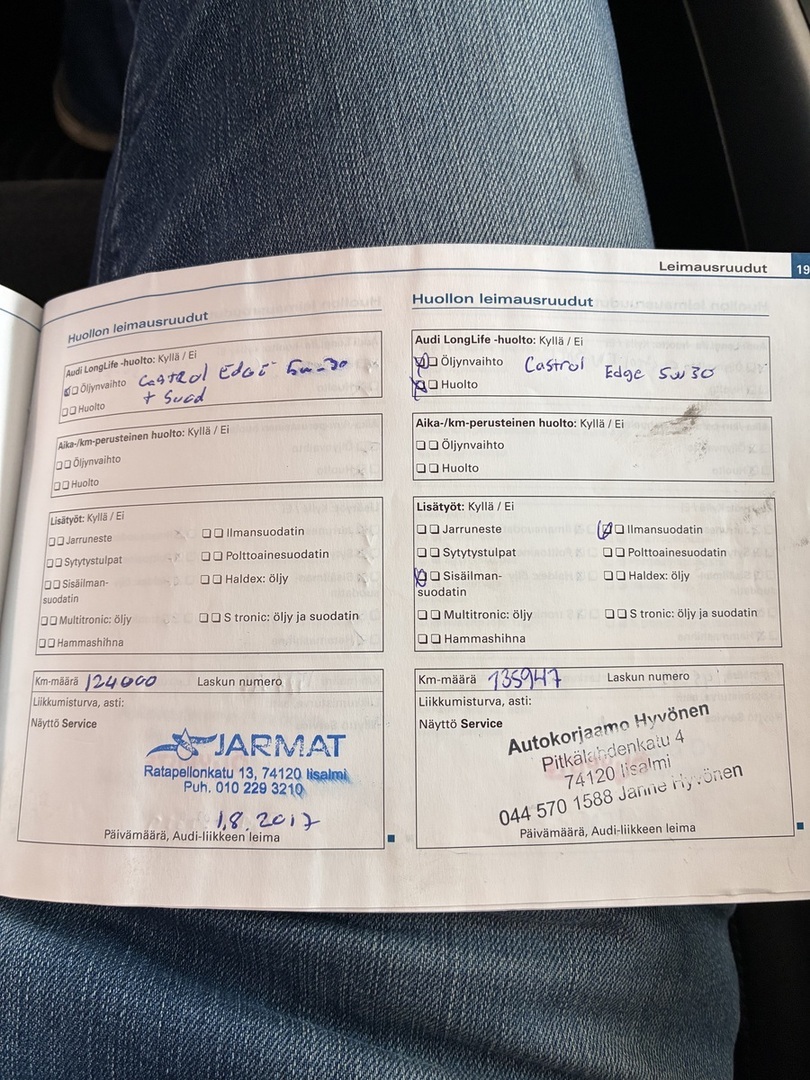 Leimausruudut
19
Huollon leimausruudut
Audi LongLife -huolto: Kyllä / Ei
Öljynvaihto Castrol EdGE 5w-30
Huolto + Suod
Aika-/km-perusteinen huolto: Kyllä / Ei
Öljynvaihto
Huolto
Lisätyöt: Kyllä / Ei
Jarruneste
Ilmansuodatin
Sytytystulpat
Polttoainesuodatin
Sisäilman-
suodatin
Haldex: öljy
Multitronic: öljy
S tronic: öljy ja suodatin
Hammashihna
Km-määrä 124000 Laskun numero
Liikkumisturva, asti:
Näyttö Service
JARMAT
Ratapellonkatu 13, 74120 Iisalmi
Puh. 010 229 3210
1.8.2017
Päivämäärä, Audi-liikkeen leima
Huollon leimausruudut
Audi LongLife -huolto: Kyllä / Ei
Öljynvaihto Castrol Edge 5w30
Huolto
Aika-/km-perusteinen huolto: Kyllä / Ei
Öljynvaihto
Huolto
Lisätyöt: Kyllä / Ei
Jarruneste
Ilmansuodatin
Sytytystulpat
Polttoainesuodatin
Sisäilman-
suodatin
Haldex: öljy
Multitronic: öljy
S tronic: öljy ja suodatin
Hammashihna
Km-määrä 135947 Laskun numero
Liikkumisturva, asti:
Näyttö Service
Autokorjaamo Hyvönen
Pitkälahdenkatu 4
74120 Iisalmi
044 570 1588 Janne Hyvönen
Päivämäärä, Audi-liikkeen leima